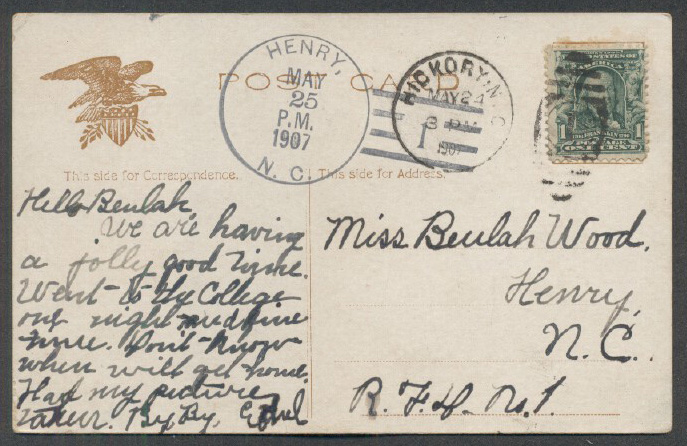 HENRY,
MAY
25
P.M.
1907
N.C.
POST CARD
HICKORY, N.C.
MAY 24
3 PM
1907
1
1 1
POSTAGE
ONE CENT
This side for Correspondence.
This side for Address.
Hello Beulah,
We are having
a jolly good time.
Went to the College
one night
time. Don't know
when will get home.
Had my picture
taken. By By, Ethel
Miss Beulah Wood,
Henry,
N.C.
R.F.D. No. 1